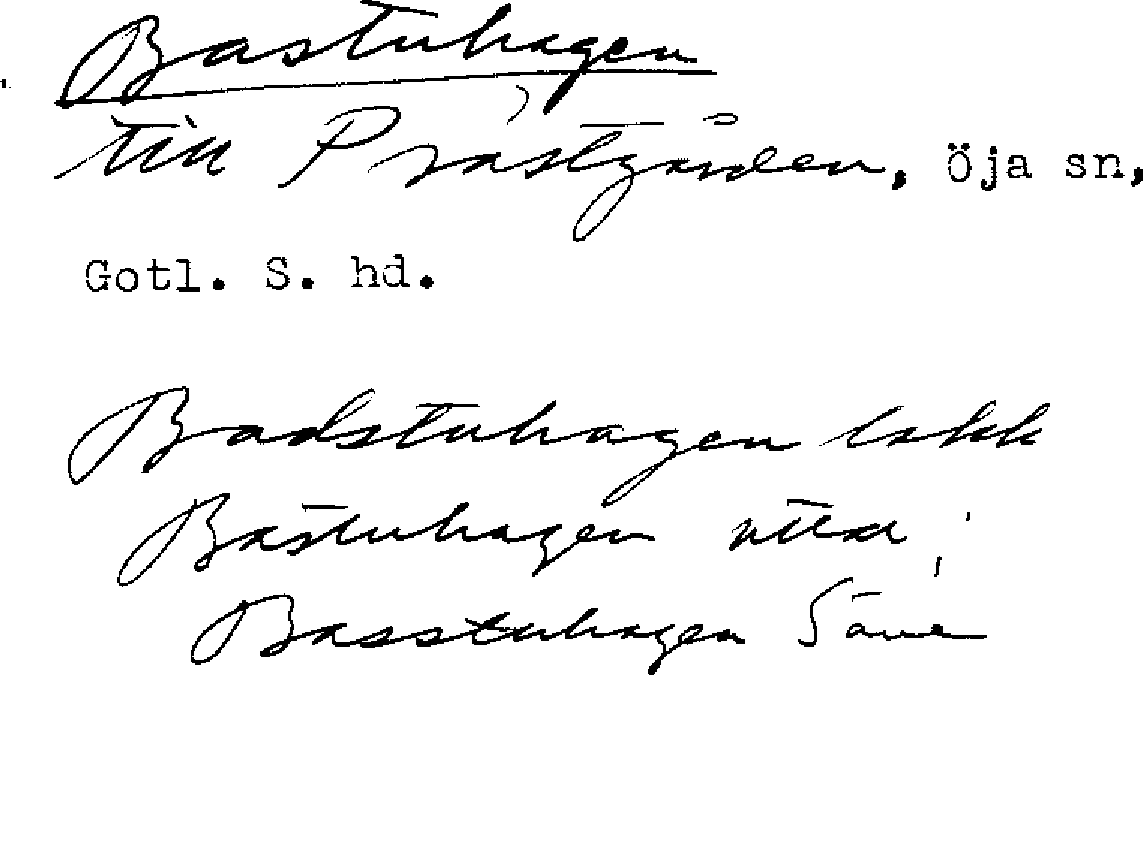 Bastuhagen
till Prästgården, Öja sn,
Gotl. S. hd.
Badstuhagen lskk
Bastuhagen
Basstuhagen Säve